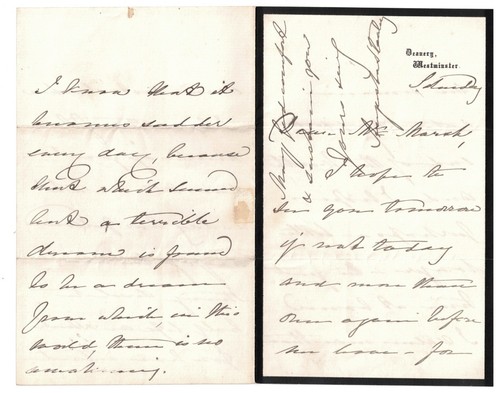 Deanery,
Westminster.
Saturday
Dear Mr Marsh,
I hope to
see you tomorrow
if not today
and more than
once again before
we leave – for
I know that it
becomes sadder
every day, because
that which seemed
but a terrible
dream is found
to be a dream
from which, in this
world, there is no
awakening.
May comfort
& sustain you
Yours sincy